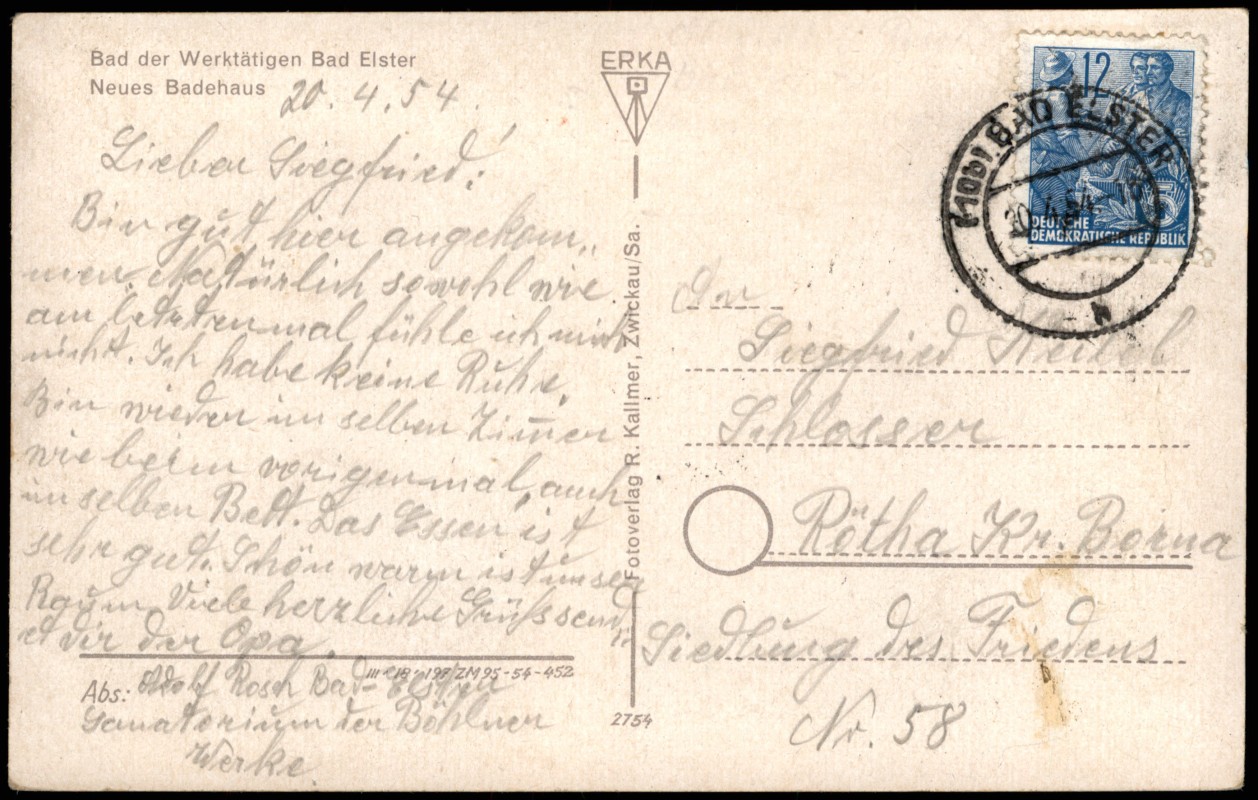 Bad der Werktätigen Bad Elster
Neues Badehaus
20.4.54.
Lieber Siegfried!
Bin gut hier angekom,,
men. Natürlich sowohl wie
am letzten mal fühle ich mich
nicht. Ich habe keine Ruhe.
Bin wieder im selben Zimer
wie beim vorigen mal, auch
im selben Bett. Das Essen ist
sehr gut. Schön warm ist unser
Raum. Viele herzliche Grüß send,,
et dir der Opa.
III-18-197/ZM95-54-452
Abs: Adolf Rosch Bad-Elster
Sanatorium der Böhlner
Werke.
ERKA
Fotoverlag R. Kallmer, Zwickau/Sa.
2754
12
DEUTSCHE
DEMOKRATISCHE REPUBLIK
5
(10b) BAD ELSTER
20.4.54
h
An
Siegfried
Schlosser
Rötha Kr. Borna
Siedlung des Friedens
Nr. 58